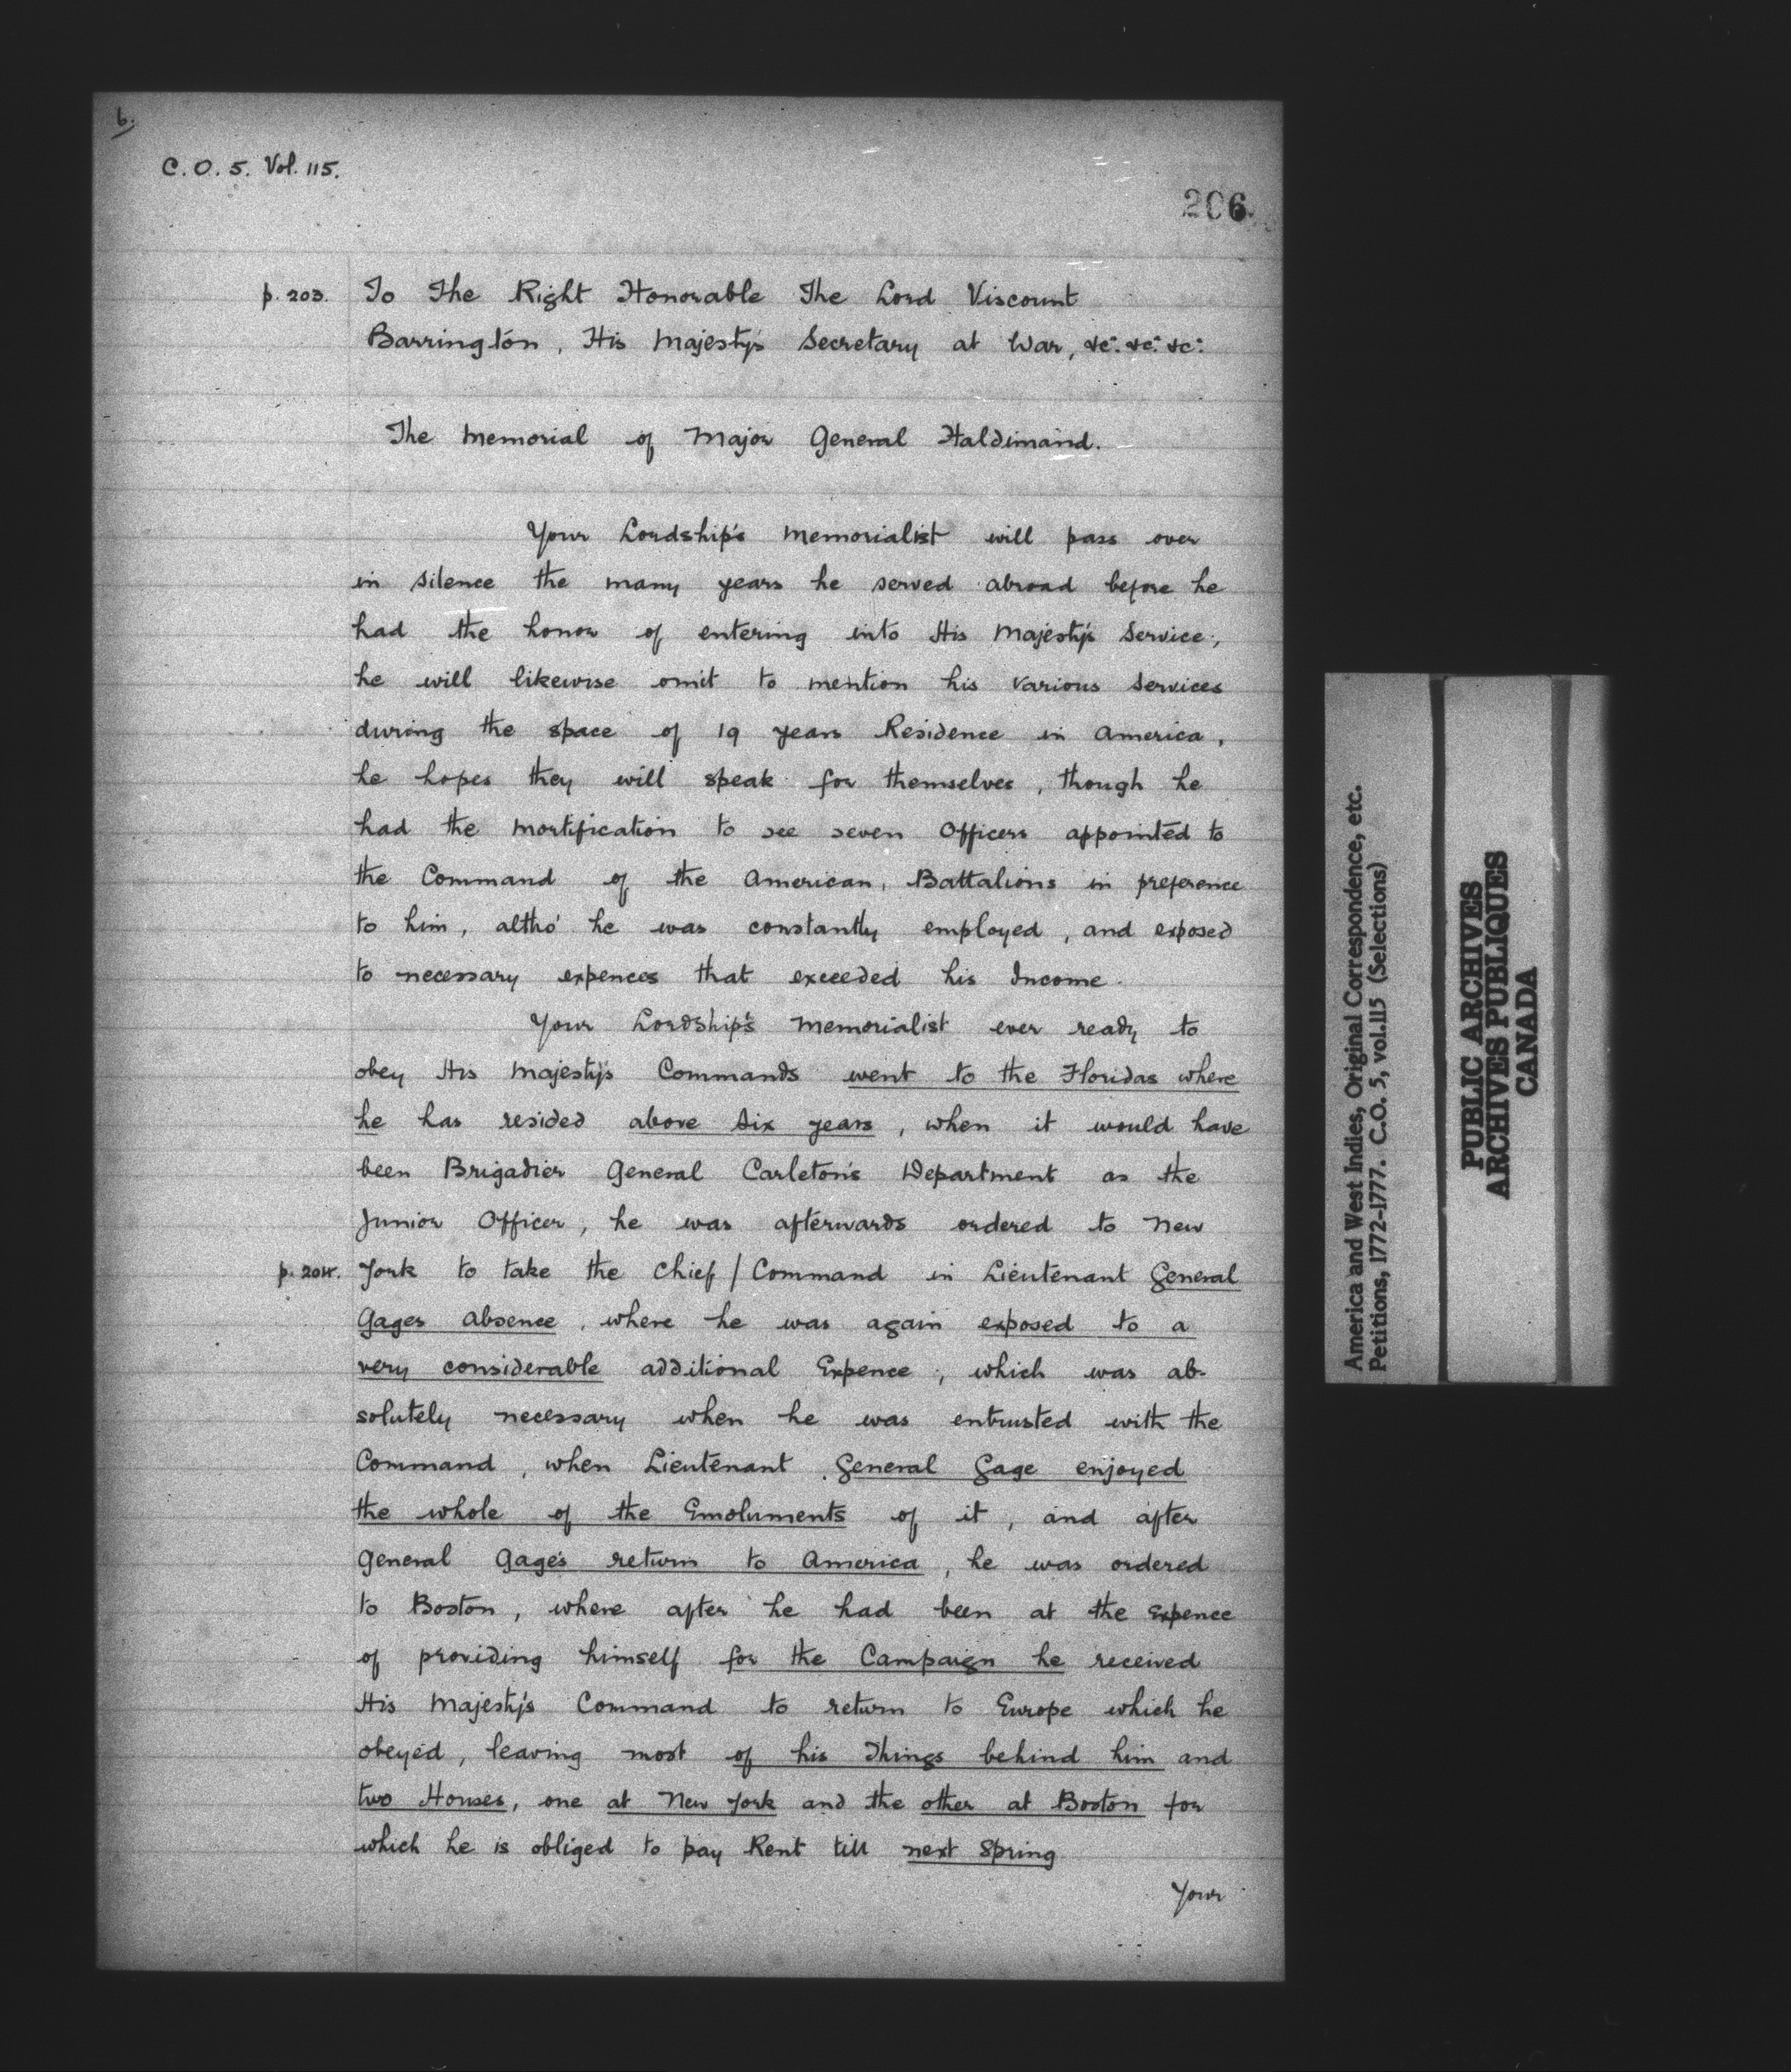 6.
C. O. 5. Vol. 115.
206.
p. 203. To The Right Honorable The Lord Viscount
Barrington, His Majesty's Secretary at War, &c: &c: &c:
The Memorial of Major General Haldimand.
Your Lordship's Memorialist will pass over
in silence the many years he served abroad before he
had the honor of entering into His Majesty's Service;
he will likewise omit to mention his various Services
during the space of 19 years Residence in America,
he hopes they will speak for themselves, though he
had the mortification to see seven Officers appointed to
the Command of the American, Battalions in preference
to him, altho' he was constantly employed, and exposed
to necessary expences that exceeded his Income.
Your Lordship's Memorialist ever ready to
obey His Majesty's Commands went to the Floridas where
he has resided above six years, when it would have
been Brigadier General Carleton's Department as the
Junior Officer, he was afterwards ordered to New
p. 204. York to take the Chief / Command in Lieutenant General
Gages absence, where he was again exposed to a
very considerable additional Expence, which was ab-
solutely necessary when he was entrusted with the
Command, when Lieutenant General Gage enjoyed
the whole of the Emoluments of it, and after
General Gage's return to America, he was ordered
to Boston, where after he had been at the Expence
of providing himself for the Campaign he received
His Majesty's Command to return to Europe which he
obeyed, leaving most of his Things behind him and
two Houses, one at New York and the other at Boston for
which he is obliged to pay Rent till next Spring
Your
America and West Indies, Original Correspondence, etc.
Petitions, 1772-1777. C.O. 5, vol.115 (Selections)
PUBLIC ARCHIVES
ARCHIVES PUBLIQUES
CANADA